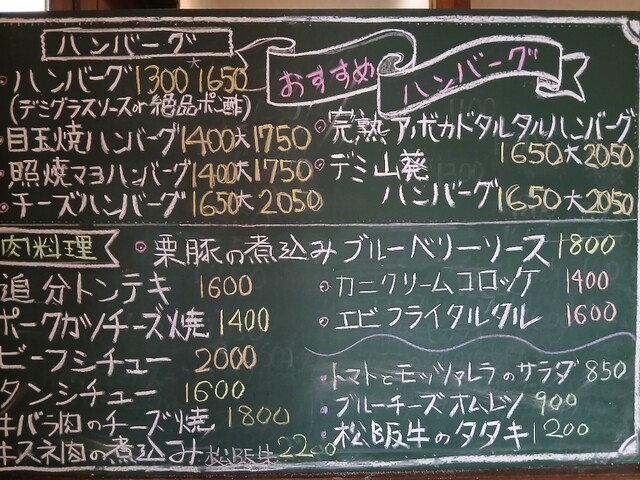 ハンバーグ
おすすめ
ハンバーグ
・ハンバーグ 1300 大 1650
(デミグラスソース or 絶品ポン酢)
・目玉焼ハンバーグ 1400 大 1750
・照焼マヨハンバーグ 1400 大 1750
・チーズハンバーグ 1650 大 2050
・完熟アボカドタルタルハンバーグ
1650 大 2050
・デミ山葵
ハンバーグ 1650 大 2050
肉料理
・栗豚の煮込みブルーベリーソース 1800
追分トンテキ 1600
ポークカツチーズ焼 1400
ビーフシチュー 2000
タンシチュー 1600
牛バラ肉のチーズ焼 1800
牛スネ肉の煮込み 松阪牛 2200
・カニクリームコロッケ 1400
・エビフライタルタル 1600
・トマトとモッツァレラのサラダ 850
・ブルーチーズオムレツ 900
・松阪牛のタタキ 1200